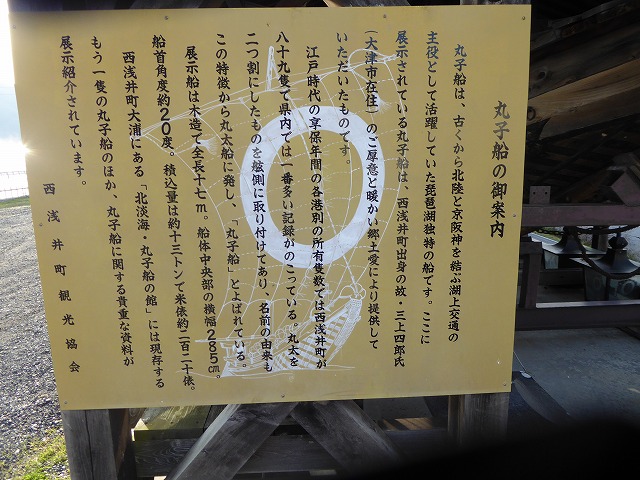 丸子船の御案内
丸子船は、古くから北陸と京阪神を結ぶ湖上交通の
主役として活躍していた琵琶湖独特の船です。ここに
展示されている丸子船は、西浅井町出身の故・三上四郎氏
(大津市在住)のご厚意と暖かい郷土愛により提供して
いただいたものです。
江戸時代の享保年間の各港別の所有隻数では西浅井町が
八十九隻で県内では一番多い記録がのこっている。丸太を
二つ割にしたものを舷側に取り付けてあり、名前の由来も
この特徴から丸太船に発し、「丸子船」とよばれている。
展示船は木造で全長十七m。船体中央部の横幅285㎝。
船首角度約20度。積込量は約十三トンで米俵約二百二十俵。
西浅井町大浦にある「北淡海・丸子船の館」には現存する
もう一隻の丸子船のほか、丸子船に関する貴重な資料が
展示紹介されています。
西浅井町観光協会